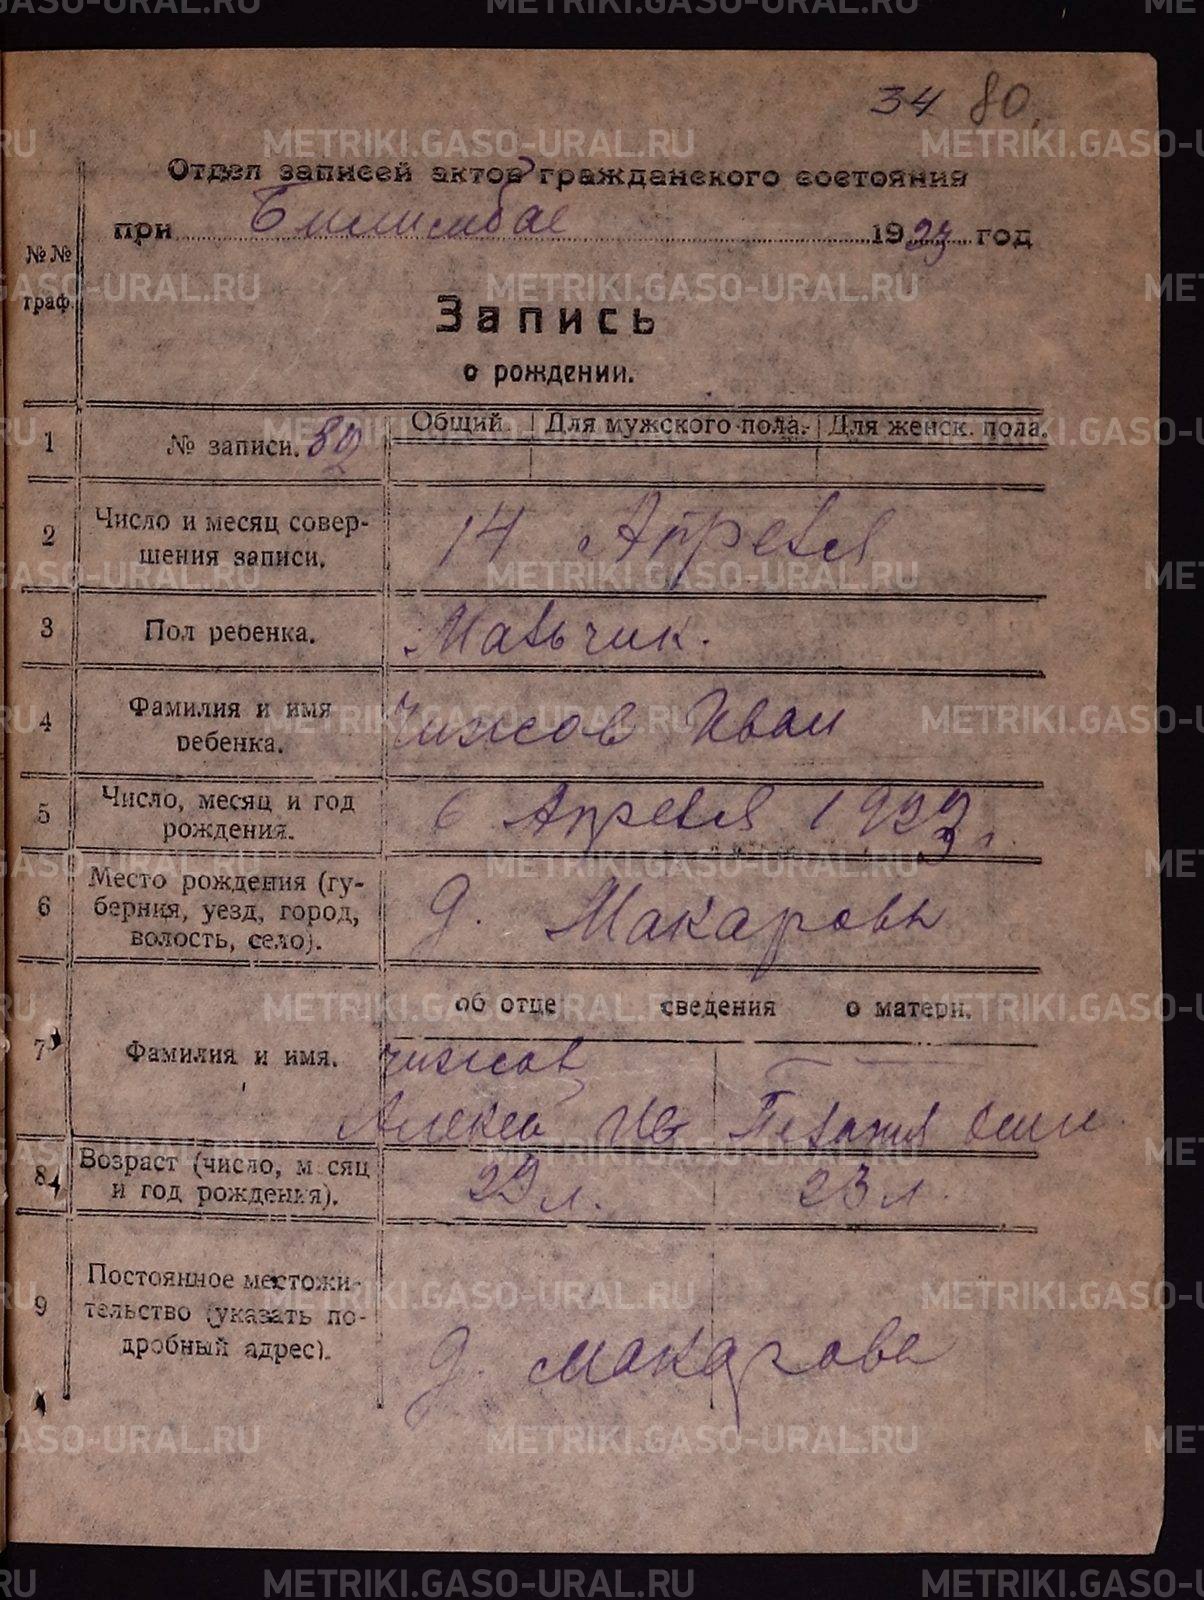 34 80.
Отдел записей актов гражданского состояния
при Билимбае 1923 год
№№ граф.
Запись
о рождении.
1 № записи. 82 Общий. Для мужского пола. Для женск. пола.
2 Число и месяц совер-
шения записи. 14 Апреля
3 Пол ребенка. Мальчик.
4 Фамилия и имя
ребенка. Чижов Иван
5 Число, месяц и год
рождения. 6 Апреля 1923 г.
6 Место рождения (гу-
берния, уезд, город,
волость, село). д. Макаровы
об отце сведения о матери.
7 Фамилия и имя. Чижов
Алексей Ив Пелагия Осип
8 Возраст (число, м сяц
и год рождения). 29 л. 23 л.
9 Постоянное местожи-
тельство (указать по-
дробный адрес). д. Макарова
METRIKI.GASO-URAL.RU